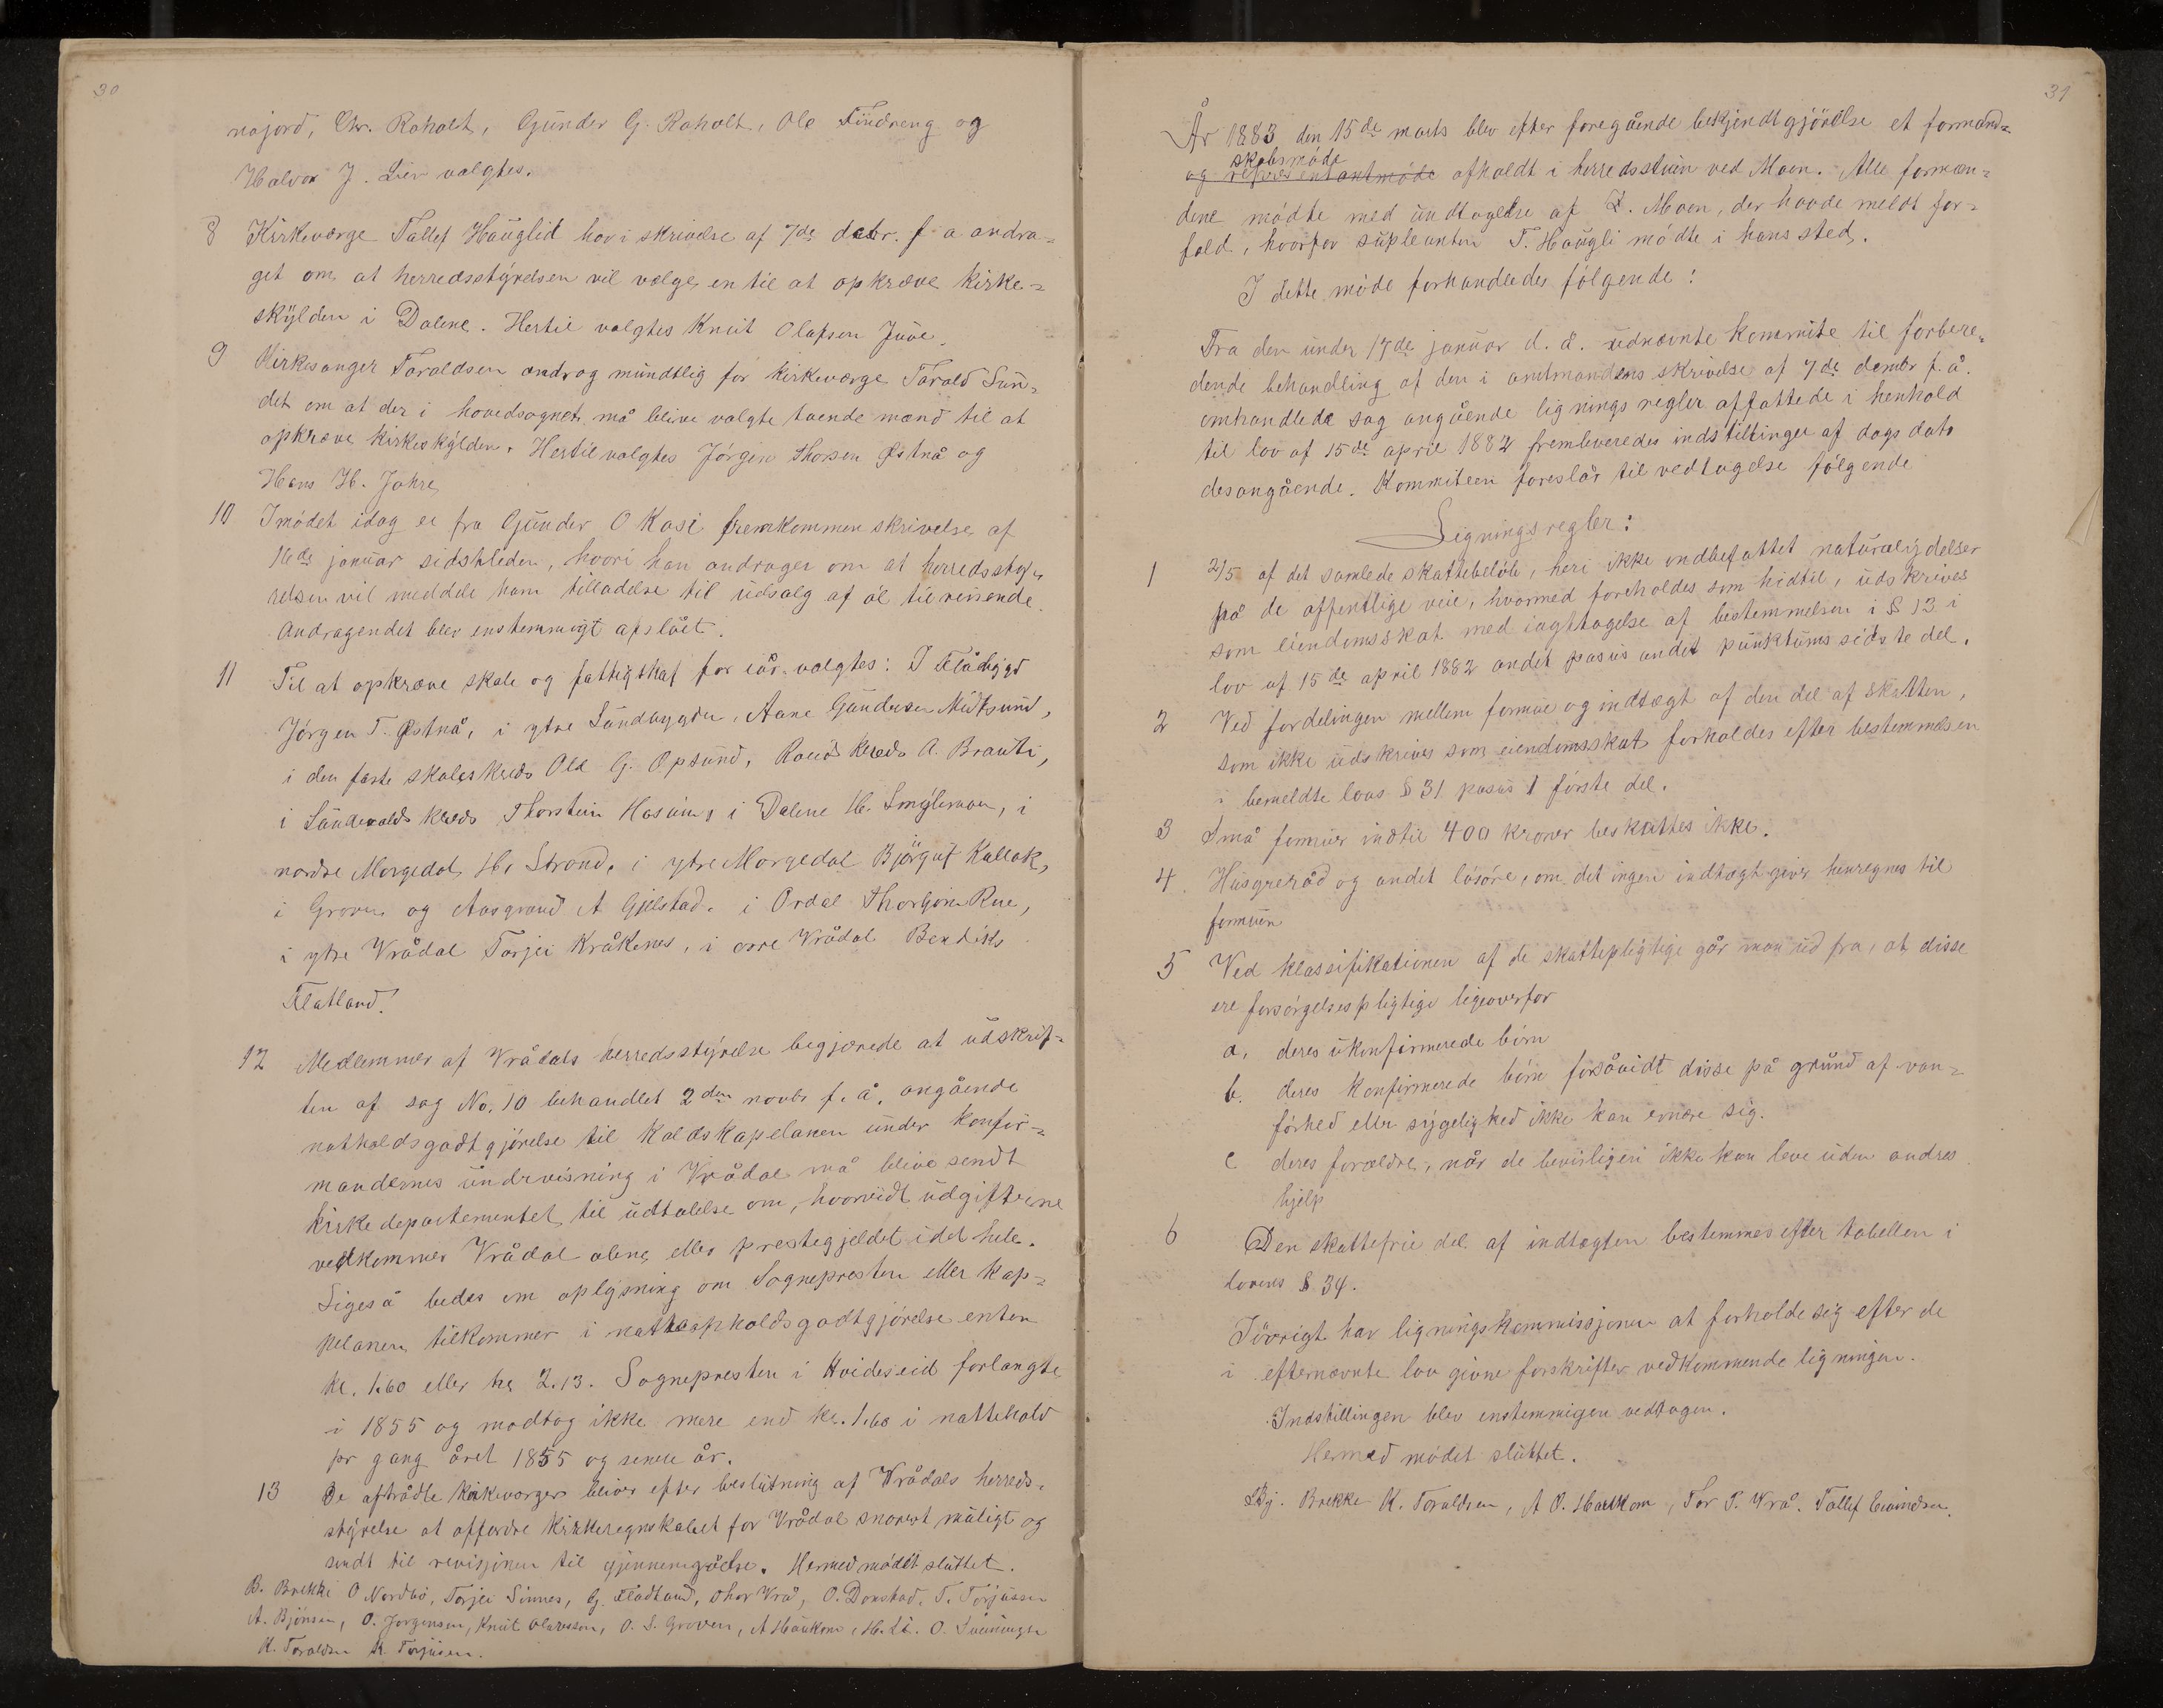 30
najord, Chr. Roholt, Gunder G. Roholt, Ole Tindreng og
Halvor J. Lien valgtes.
8 Kirkeværge Tallef Hauglid har i skrivelse af 7de decbr. f a andra-
get om at herredsstyrelsen vil vælge en til at opkræve kirke-
skylden i Dalene. Hertil valgtes Knut Olafsen Juve.
9 Kirkesanger Taraldsen androg mundtlig for kirkeværge Tarald Sun-
det om at der i hovedsognet må blive valgte tvende mænd til at
opkræve kirkeskylden. Hertil valgtes Jörgen Thorsen Østnå og
Hans H. Jahre
10 I mödet idag er fra Gunder O Kasi fremkommen skrivelse af
16de januar sidstleden, hvori han andrager om at herredssty-
relsen vil meddele ham tilladelse til udsalg af öl til reisende.
Andragendet blev enstemmigt afslået.
11 Til at opkræve skole og fattigskat for iår valgtes: I Flåbygd
Jörgen T. Østnå, i ytre Sundbygden, Aane Gundersen Midtsund,
i den faste skoleskreds Ole G. Opsund, Roeids kreds A. Brauti,
i Sundevalds kreds Thorstein Hosum, i Dalene H. Smylimoen, i
nordre Morgedal H. Strond, i ytre Morgedal Björguf Kallak,
i Groven og Aasgrend A Gjelstad. i Ordal Thorbjörn Rue,
i ytre Vrådal Torjei Kråkenes, i övre Vrådal Bendiks
Flatland.
12 Medlemmer af Vrådals herredsstyrelse begjærede at udskrif-
ten af sag No. 10 behandlet 2den novbr f. å. angående
natholdsgodtgjörelse til Kaldskapelanen under konfir-
mandernes undervisning i Vrådal må blive sendt
kirkedepartementet til udtalelse om, hvorvidt udgifterne
vedkommer Vrådal alene eller prestegjeldet i det hele.
Ligeså bedes om oplysning om Sognepresten eller kap-
pelanen tilkommer i natteopholdsgodtgjörelse enten
kr. 1.60 eller kr 2.13. Sognepresten i Hvideseid forlangte
i 1855 og modtog ikke mere end kr. 1.60 i nattehold
pr gang året 1855 og senere år.
13 De aftrådte kirkeværger bliver efter beslutning af Vrådals herreds-
styrelse at affordre kirkeregnskabet for Vrådal snarest muligt og
sendt til revisjonen til gjennemgåelse. Hermed mödet sluttet.
B. Brekke O Nordbö, Torjei Sinnes, G. Fladland, Thor Vrå, O. Donstad, T. Torjussen
A. Bjönsen, O. Jorgensen, Knut Olavsson, O. S. Groven, A Haukom, H. Li. O. Sveinungsen
K. Taraldsen K. Torjusen.
31
År 1883 den 15de marts blev efter foregående bekjendtgjörelse et formand-
skabsmöde
og repræsentantmöde afholdt i herredsstuen ved Moen. Alle formæn-
dene mödte med undtagelse af D. Moen, der havde meldt for-
fald, hvorfor supleanten T. Haugli mödte i hans sted.
I dette möde forhandledes fölgende:
Fra den under 17de januar d. å. udnævnte kommite til forbere-
dende behandling af den i amtmandens skrivelse af 7de decmbr f. å.
omhandlede sag angående ligningsregler affattede i henhold
til lov af 15de april 1882 fremleveredes indstillingen af dags dato
desangående. Kommiteen foreslår til vedtagelse fölgende
Ligningsregler:
1 2/5 af det samlede skattebelöb, heri ikke indbefattet naturalydelser
på de offentlige veie, hvormed foreholdes som hidtil, udskrives
som eiendomsskat med iagttagelse af bestemmelsen i § 13 i
lov af 15de april 1882 andet pasus andet punktums sidste del.
2 Ved fordelingen mellem formue og indtægt af den del af skatten,
som ikke udskrives som eiendomsskat forholdes efter bestemmelsen
i bemeldte lovs § 31 pasus 1 förste del.
3 Små formuer indtil 400 kroner beskattes ikke.
4. Husgreråd og andet lösöre, om det ingen indtægt giver henregnes til
formuen
5 Ved klassifikationen af de skattepligtige går man ud fra, at disse
ere forsörgelsespligtige ligeoverfor
a. deres ukonfirmerede börn
b. deres konfirmerede börn forsåvidt disse på grund af van-
förhed eller sygelighed ikke kan ernære sig.
c deres forældre, når de bevisligen ikke kan leve uden andres
hjelp
6 Den skattefrie del af indtægten bestemmes efter tabellen i
lovens § 34.
Iövrigt har ligningskommissjonen at forholde sig efter de
i efternævnte lov givne forskrifter vedkommende ligningen.
Indstillingen blev enstemmigen vedtagen.
Hermed mödet sluttet.
Bj. Brekke K. Taraldsen, A O. Haukom, Tor T. Vrå. Tallef Evindsen.